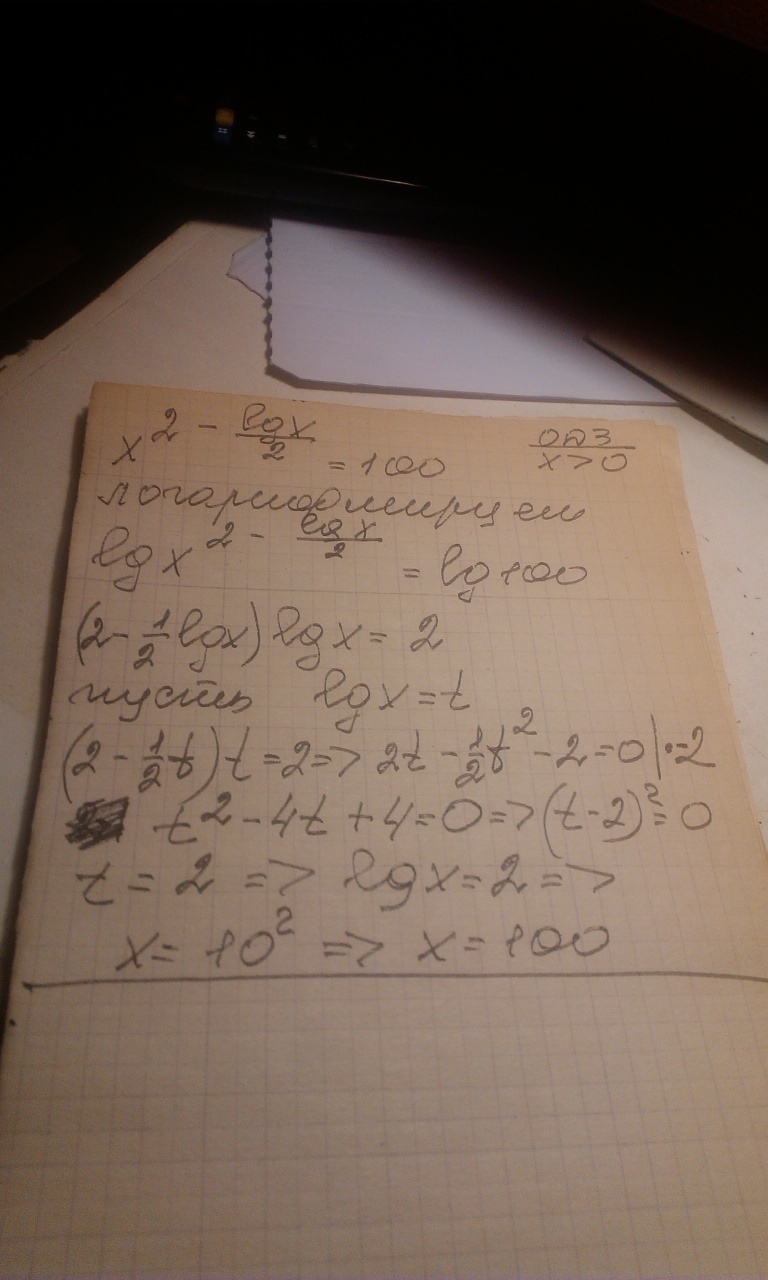 x^{2 - \frac{lgx}{2}} = 100    ОДЗ x>0
логарифмируем
lg x^{2 - \frac{lg x}{2}} = lg 100
(2 - \frac{1}{2} lgx) lg x = 2
пусть lg x = t
(2 - \frac{1}{2} t) t = 2 => 2t - \frac{1}{2} t^2 - 2 = 0 | ·-2
t^2 - 4t + 4 = 0 => (t-2)^2 = 0
t = 2 => lg x = 2 =>
x = 10^2 => x = 100